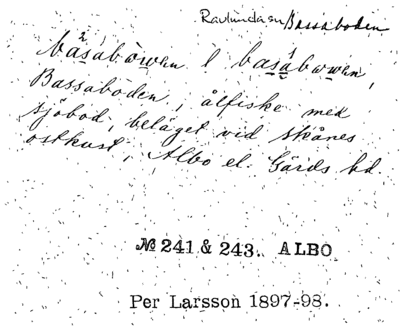 Ravlunda sn Bassaboden
båsabọwen l basạ̊bọwen,
Bassaboden, ålfiske med
sjöbod, beläget vid Skånes
ostkust, Albo el. Gärds hd.
№ 241 & 243. ALBO
Per Larsson 1897-98.